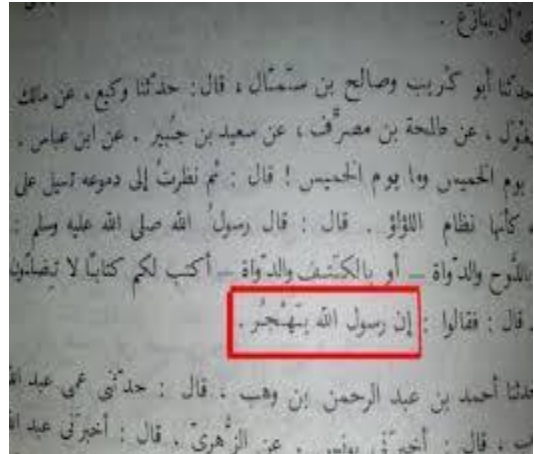 أن ينازع .
حدثنا أبو كُريب وصالح بن سمال ، قال : حدثنا وكيع ، عن مالك
مِغْوَل ، عن طلحة بن مصرِّف ، عن سعيد بن جُبير . عن ابن عباس ،
يوم الخميس وما يوم الخميس ! قال : ثم نظرتُ إلى دموعه تسيل على
كأنها نظام اللؤلؤ . قال : قال رسولُ الله صلى الله عليه وسلم :
باللَّوح والدَّواة – أو بالكتف والدَّواة – أكتب لكم كتابًا لا تضلُّون
قال : فقالوا : إن رسول الله يَهْجُر .
حدثنا أحمد بن عبد الرحمن بن وهب ، قال : حدثني عمي عبد الله
قال : أخبرني يونس ، عن الزُّهريّ ، قال : أخبرني عبد